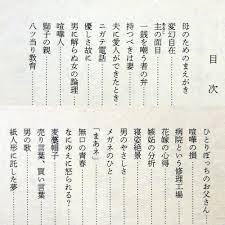 目次
母のためのまえがき
変幻自在
主の面目
一銭を嘲う者の弁
持つべきは妻
夫に愛人ができたとき
ニガテ電話
優しさ故に
男に解らぬ女の論理
喧嘩人
獅子の親
八ツ当り教育
ひとりぼっちのお父さん
喧嘩の損
病院という修理工場
花嫁の心得
嫉妬の分析
寝姿絶景
男のやさしさ
メガネのひと
「まあネ」
無口の青春
なにゆえに怒られる?
麦藁帽子
売り言葉、買い言葉
男の歌
紙人形に託した夢